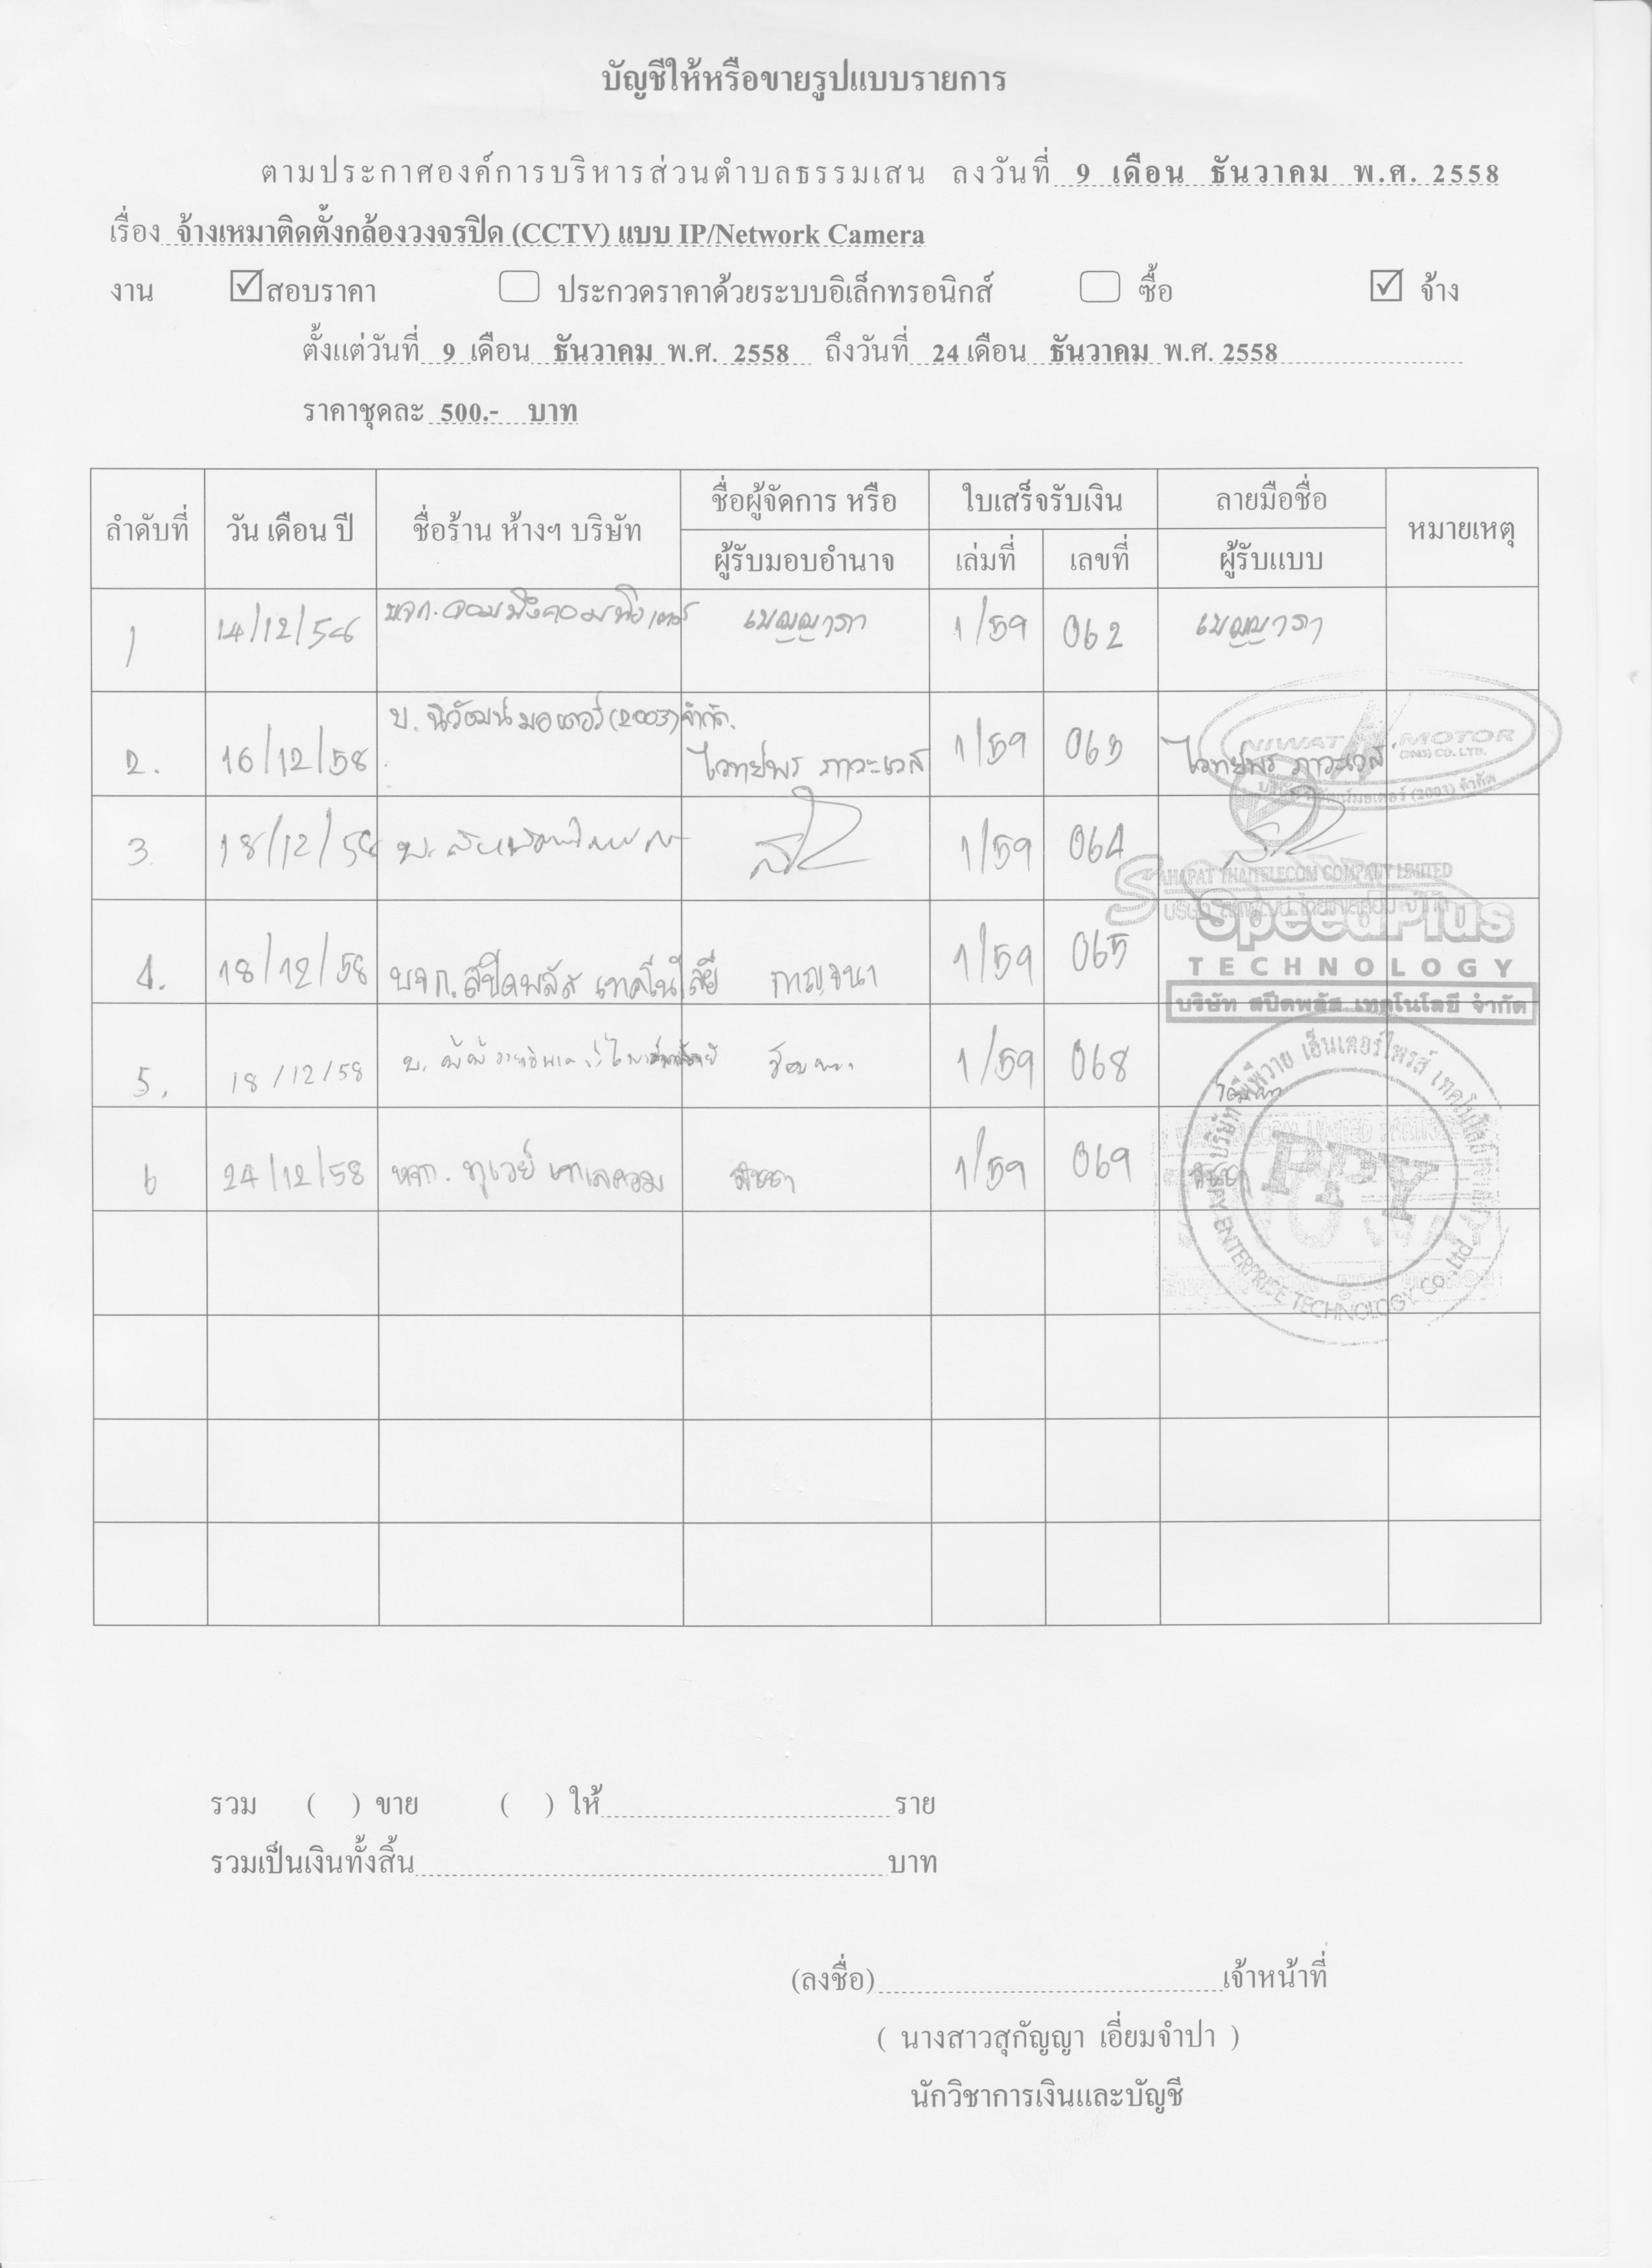 บัญชีให้หรือขายรูปแบบรายการ
ตามประกาศองค์การบริหารส่วนตำบลธรรมเสน ลงวันที่ 9 เดือน ธันวาคม พ.ศ. 2558
เรื่อง จ้างเหมาติดตั้งกล้องวงจรปิด (CCTV) แบบ IP/Network Camera
งาน ☑ สอบราคา ☐ ประกวดราคาด้วยระบบอิเล็กทรอนิกส์ ☐ ซื้อ ☑ จ้าง
ตั้งแต่วันที่ 9 เดือน ธันวาคม พ.ศ. 2558 ถึงวันที่ 24 เดือน ธันวาคม พ.ศ. 2558
ราคาชุดละ 500.- บาท
ลำดับที่ วัน เดือน ปี ชื่อร้าน ห้างฯ บริษัท ชื่อผู้จัดการ หรือ ใบเสร็จรับเงิน ลายมือชื่อ หมายเหตุ
ผู้รับมอบอำนาจ เล่มที่ เลขที่ ผู้รับแบบ
1 14/12/58 เบญญาภา 1/59 062 เบญญาภา
2. 16/12/58 บ. นิวัฒน์มอเตอร์ (2003) จำกัด. ไวทย์พร ภาวะเวส 1/59 063 ไวทย์พร ภาวะเวส
NIWAT MOTOR
(2003) CO. LTD.
3. 18/12/58 1/59 064
SAHAPAT THAITELECOM COMPANY LIMITED
4. 18/12/58 บจก. สปีดพลัส เทคโนโลยี กาญจนา 1/59 065
SpeedPlus
TECHNOLOGY
บริษัท สปีดพลัส เทคโนโลยี จำกัด
5. 18/12/58 1/59 068
บริษัท พีพีวาย เอ็นเตอร์ไพรส์ เทคโนโลยี
PPY
PPY ENTERPRISE TECHNOLOGY CO.,Ltd.
6 24/12/58 หจก. ทูเวย์ เทเลคอม 1/59 069
รวม ( ) ขาย ( ) ให้ ราย
รวมเป็นเงินทั้งสิ้น บาท
(ลงชื่อ) เจ้าหน้าที่
( นางสาวสุกัญญา เอี่ยมจำปา )
นักวิชาการเงินและบัญชี